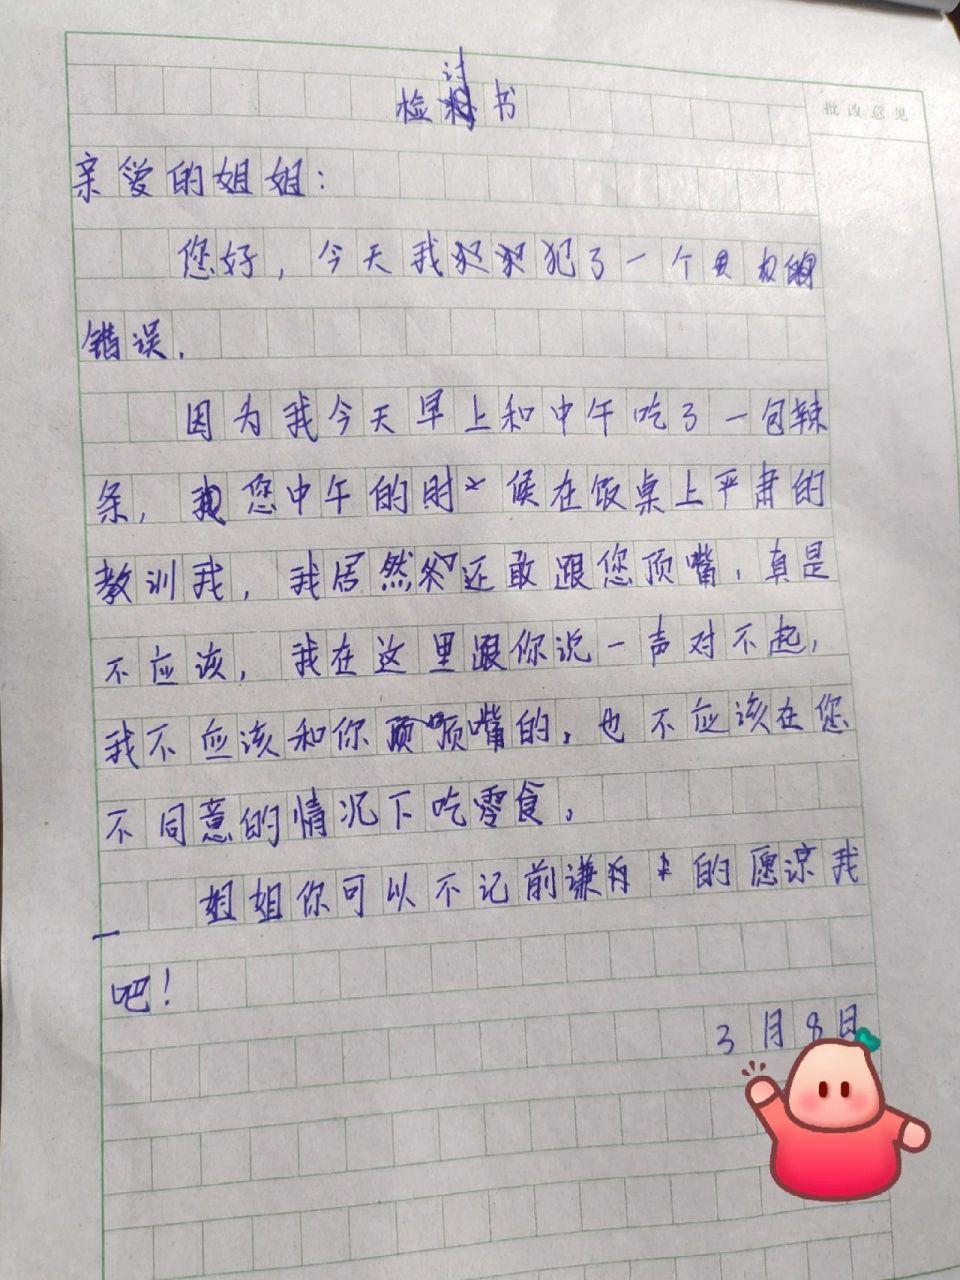 检讨书
批改意见
亲爱的姐姐：
您好，今天我犯了一个的
错误.
因为我今天早上和中午吃了一包辣
条，您中午的时候在饭桌上严肃的
教训我，我居然还敢跟您顶嘴，真是
不应该，我在这里跟你说一声对不起，
我不应该和你顶嘴的。也不应该在您
不同意的情况下吃零食。
姐姐你可以不记前谦的愿谅我
吧！
3月8日